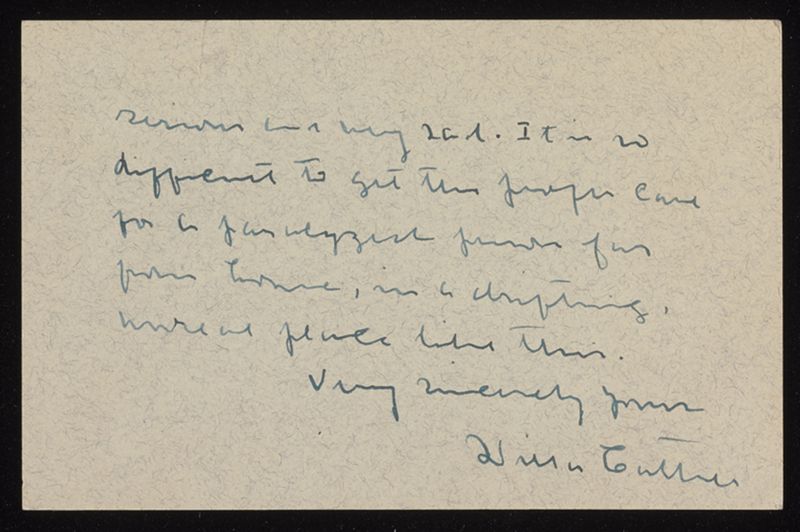 serious and very sad. It is so
difficult to get the proper care
for a paralyzed person far
from home, in a drifting,
unreal place like this.
Very sincerely yours
Willa Cather